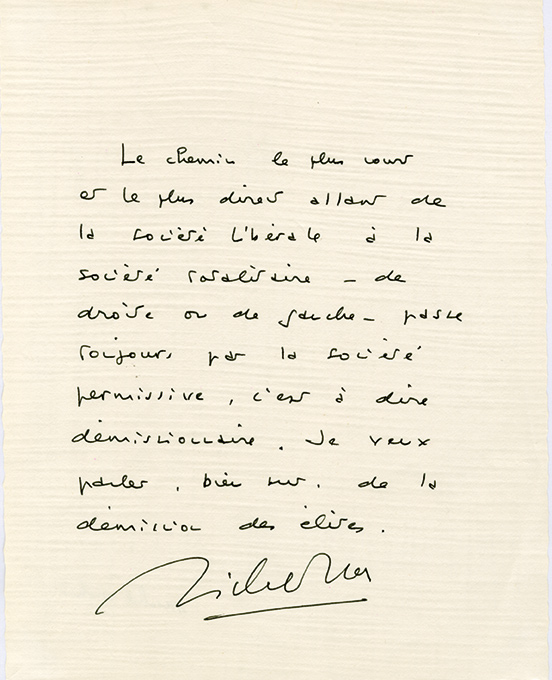 Le chemin le plus court
et le plus direct allant de
la société libérale à la
société totalitaire - de
droite ou de gauche - passe
toujours par la société
permissive, c'est à dire
démissionnaire. Je veux
parler, bien sur, de la
démission des élites.